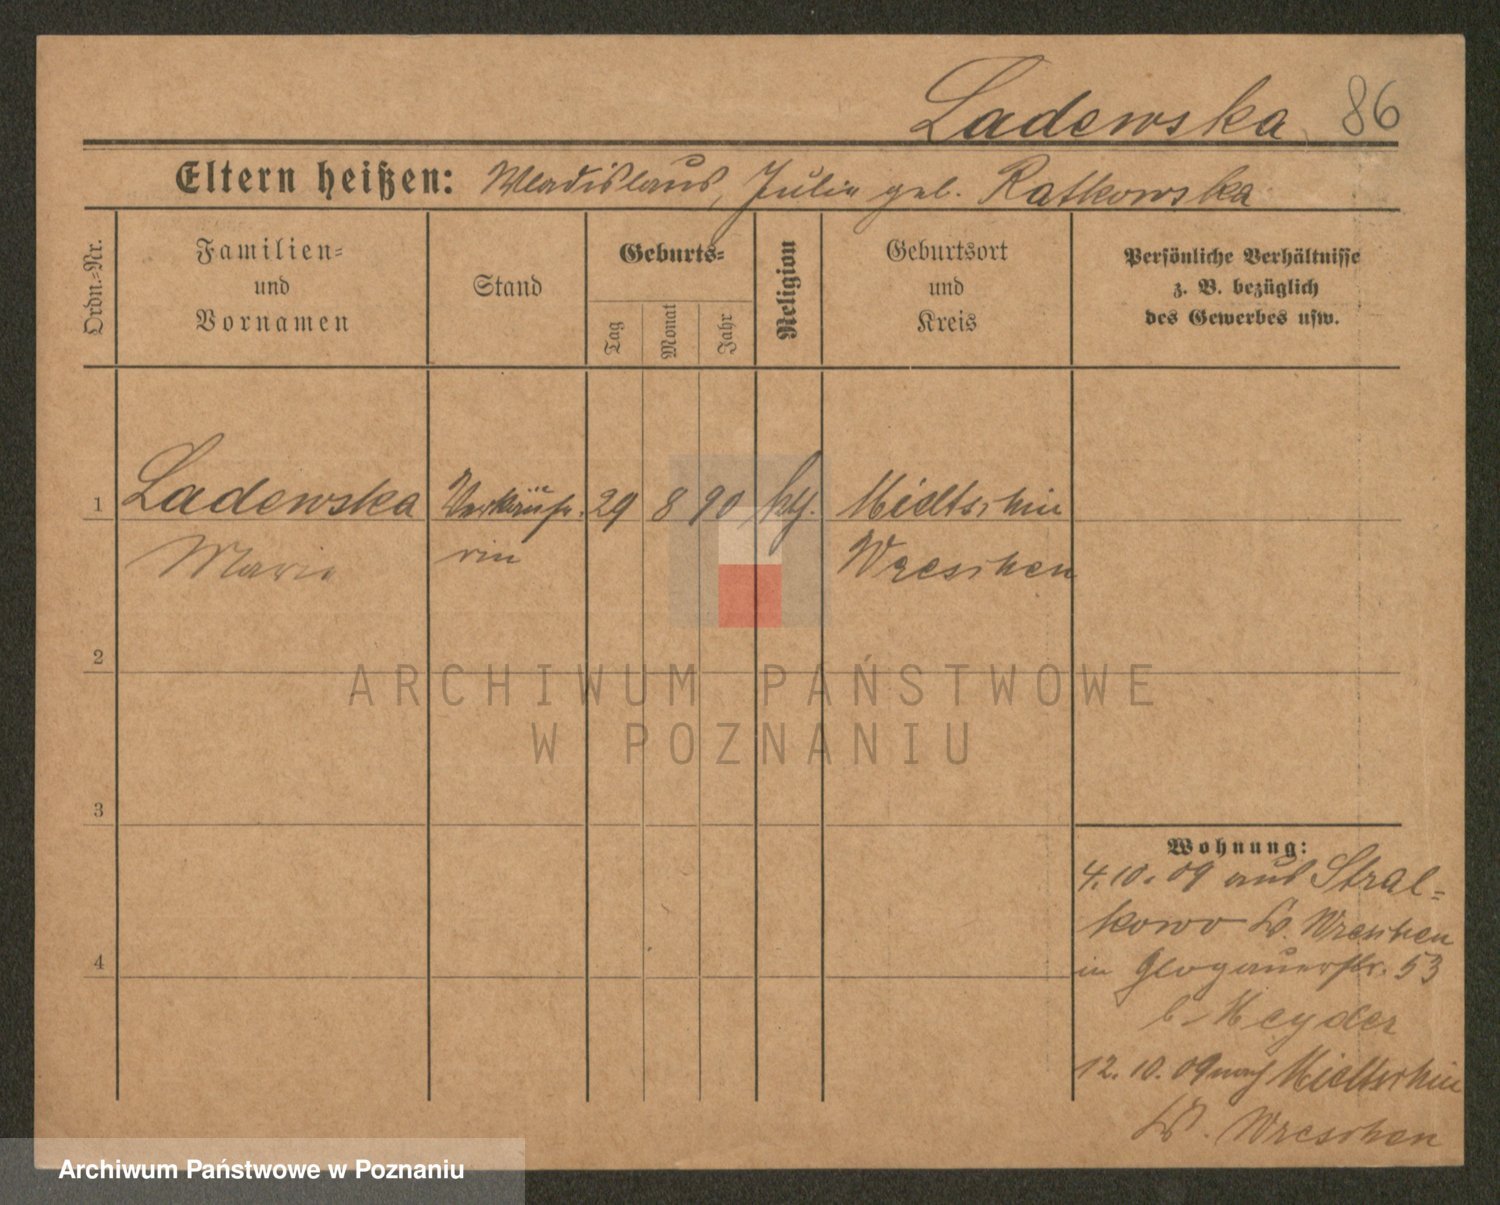 Ladewska 86
Eltern heißen: Wladislaus, Julia geb. Ratkowska
Ordn.-Nr.
Familien-
und
Vornamen
Stand
Geburts-
Tag
Monat
Jahr
Religion
Geburtsort
und
Kreis
Persönliche Verhältnisse
z. B. bezüglich
des Gewerbes usw.
1 Ladewska Verkäufe- 29 8 90 kth. Mieltschin
Marie rin Wreschen
2
ARCHIWUM PAŃSTWOWE
W POZNANIU
3
Wohnung:
4.10.09 aus Stral-
kowo Kr. Wreschen
4
in Glogauerstr. 53
b. Heyder
12.10.09 nach Mieltschin
Kr. Wreschen
Archiwum Państwowe w Poznaniu